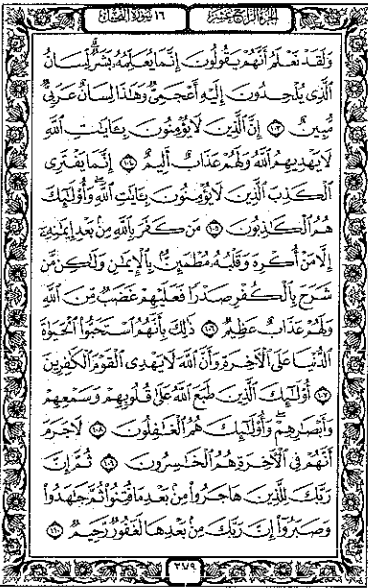 الجزء الرابع عشر
١٦ سورة النحل
وَلَقَدْ نَعْلَمُ أَنَّهُمْ يَقُولُونَ إِنَّمَا يُعَلِّمُهُ بَشَرٌ لِّسَانُ
الَّذِي يُلْحِدُونَ إِلَيْهِ أَعْجَمِيٌّ وَهَٰذَا لِسَانٌ عَرَبِيٌّ
مُّبِينٌ ١٠٣ إِنَّ الَّذِينَ لَا يُؤْمِنُونَ بِـَٔايَٰتِ اللَّهِ
لَا يَهْدِيهِمُ اللَّهُ وَلَهُمْ عَذَابٌ أَلِيمٌ ١٠٤ إِنَّمَا يَفْتَرِي
الْكَذِبَ الَّذِينَ لَا يُؤْمِنُونَ بِـَٔايَٰتِ اللَّهِ وَأُو۟لَٰٓئِكَ
هُمُ الْكَٰذِبُونَ ١٠٥ مَن كَفَرَ بِاللَّهِ مِنۢ بَعْدِ إِيمَٰنِهِ
إِلَّا مَنْ أُكْرِهَ وَقَلْبُهُ مُطْمَئِنٌّۢ بِالْإِيمَٰنِ وَلَٰكِن مَّن
شَرَحَ بِالْكُفْرِ صَدْرًا فَعَلَيْهِمْ غَضَبٌ مِّنَ اللَّهِ
وَلَهُمْ عَذَابٌ عَظِيمٌ ١٠٦ ذَٰلِكَ بِأَنَّهُمُ اسْتَحَبُّوا الْحَيَوٰةَ
الدُّنْيَا عَلَى الْآخِرَةِ وَأَنَّ اللَّهَ لَا يَهْدِي الْقَوْمَ الْكَٰفِرِينَ
١٠٧ أُو۟لَٰٓئِكَ الَّذِينَ طَبَعَ اللَّهُ عَلَىٰ قُلُوبِهِمْ وَسَمْعِهِمْ
وَأَبْصَٰرِهِمْ وَأُو۟لَٰٓئِكَ هُمُ الْغَٰفِلُونَ ١٠٨ لَا جَرَمَ
أَنَّهُمْ فِي الْآخِرَةِ هُمُ الْخَٰسِرُونَ ١٠٩ ثُمَّ إِنَّ
رَبَّكَ لِلَّذِينَ هَاجَرُوا مِنۢ بَعْدِ مَا فُتِنُوا ثُمَّ جَٰهَدُوا
وَصَبَرُوا إِنَّ رَبَّكَ مِنۢ بَعْدِهَا لَغَفُورٌ رَّحِيمٌ ١١٠
٢٧٩